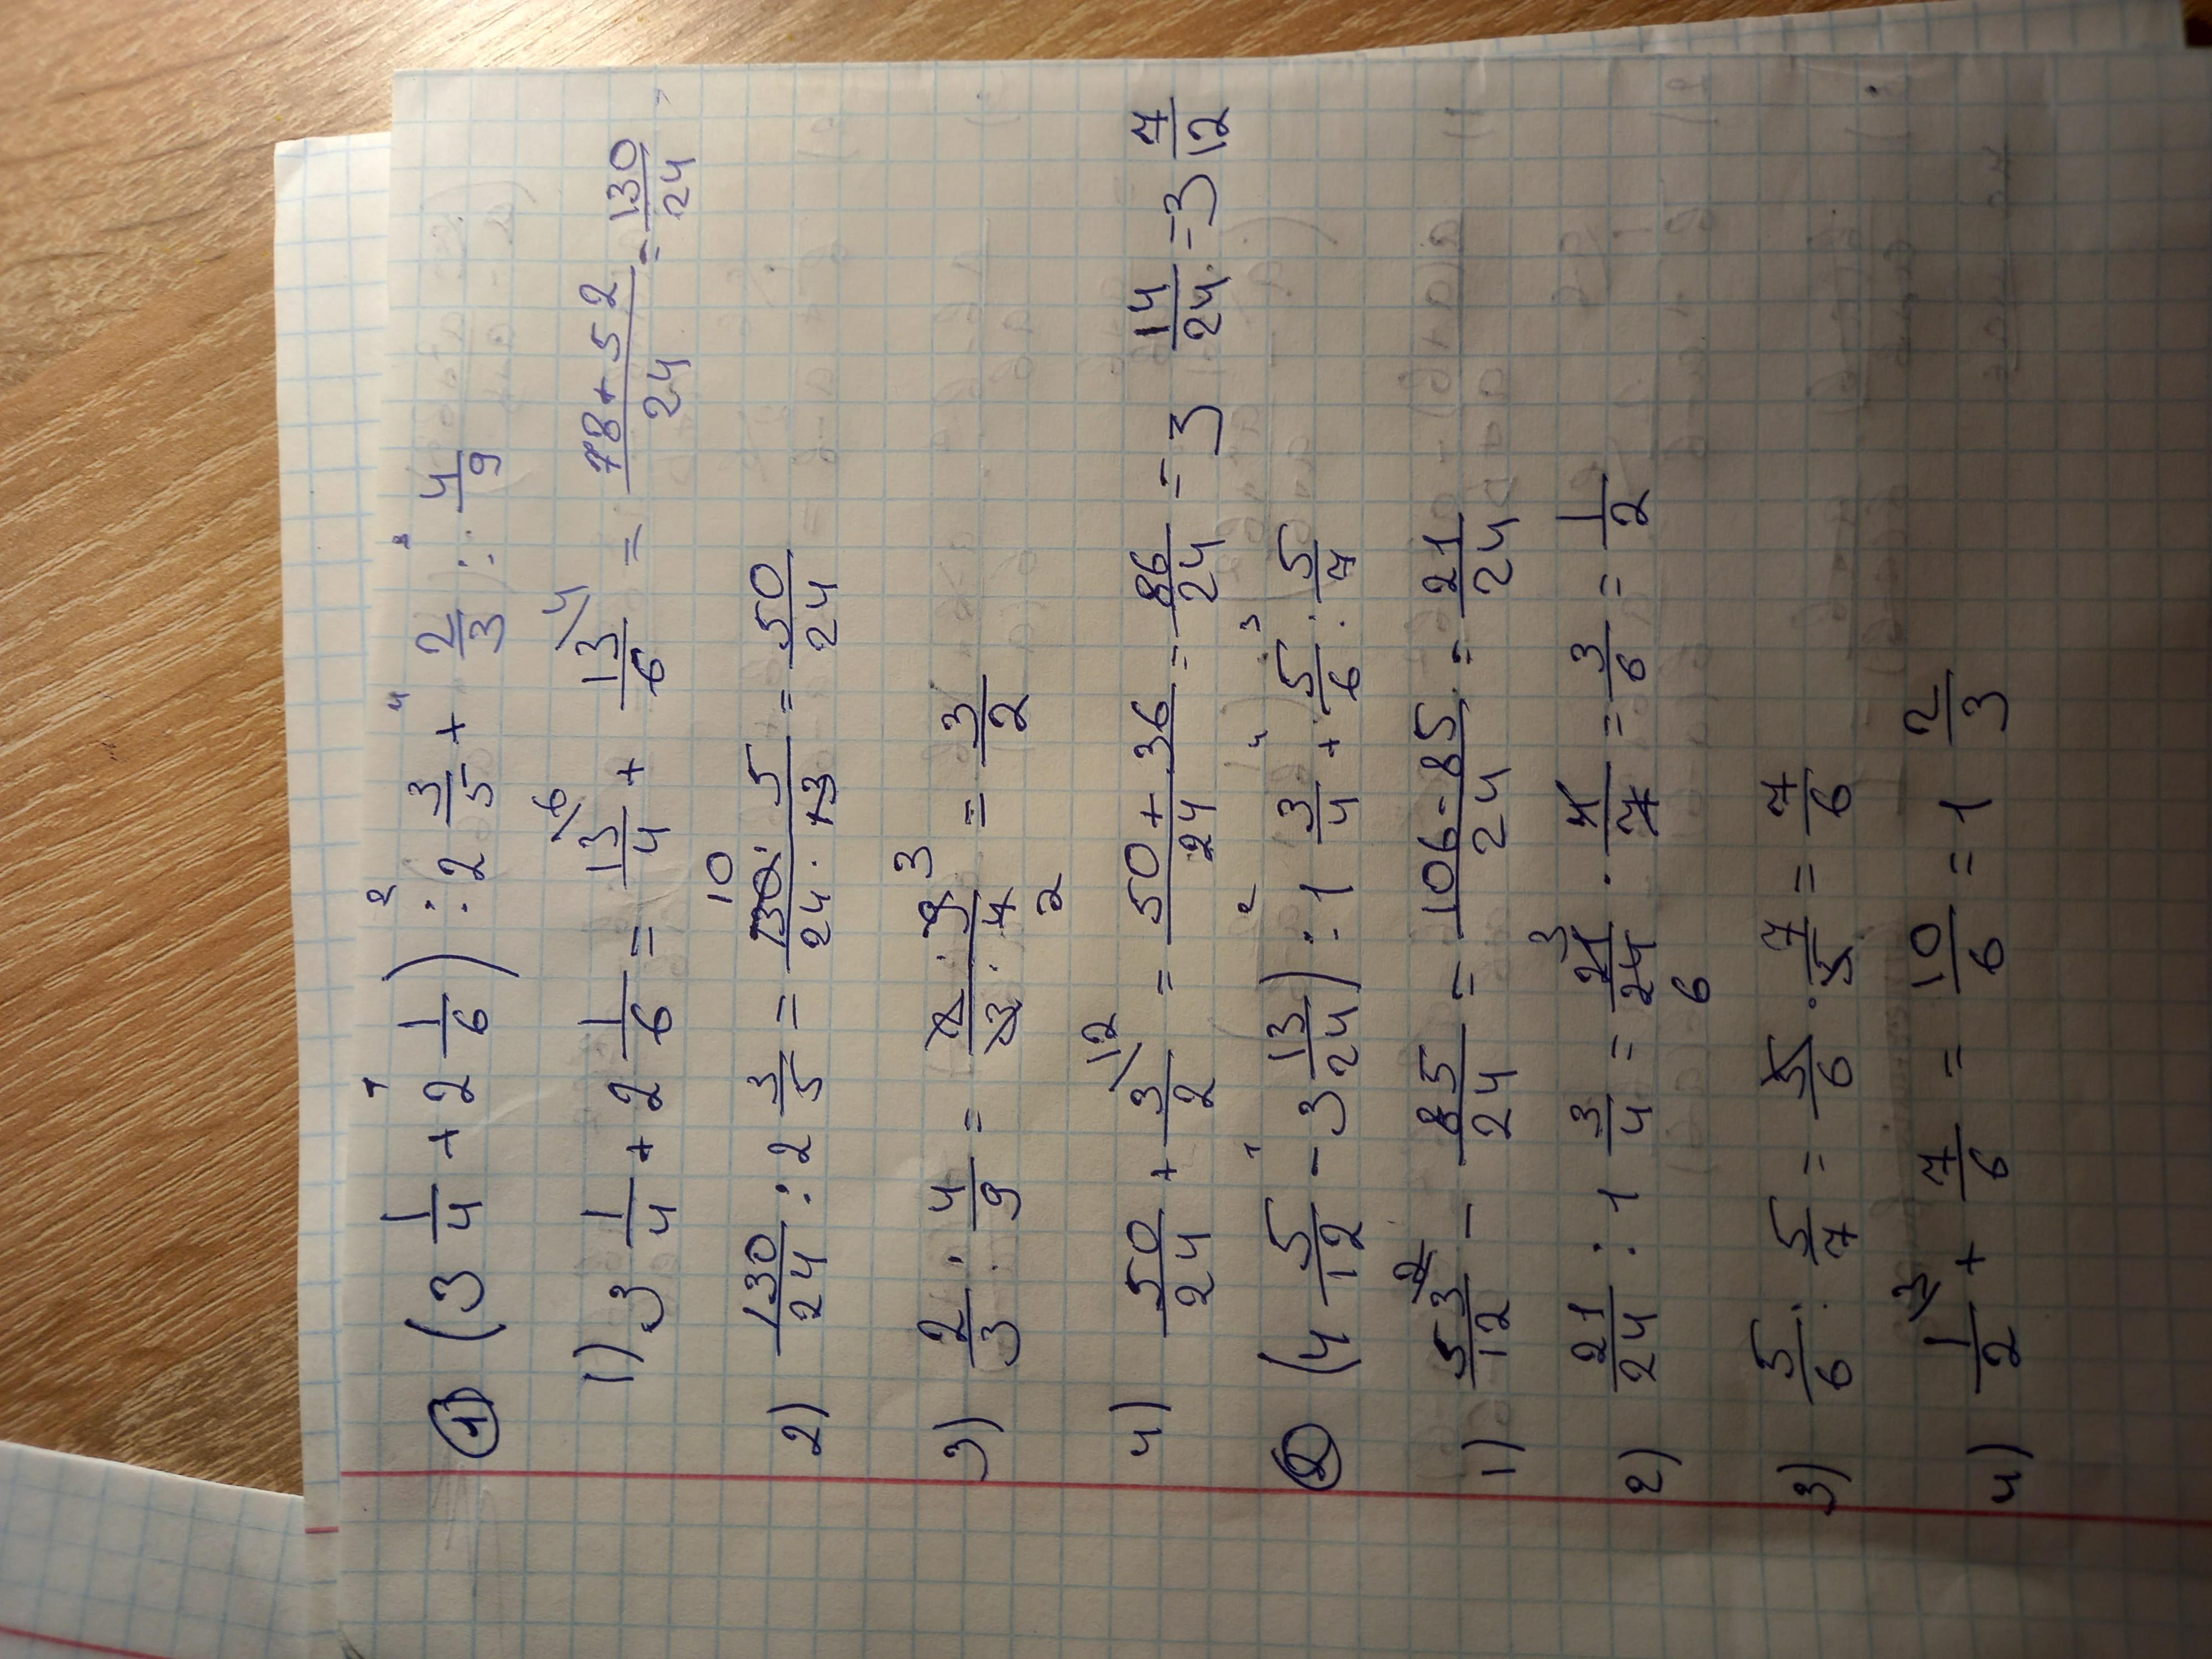 ① (3 1/4 + 2 1/6) : 2 3/5 + 2/3 : 4/9
1) 3 1/4 + 2 1/6 = 13/4 \6 + 13/6 \4 = 78+52/24 = 130/24
2) 130/24 : 2 3/5 = 130 10 · 5/24 · 13 = 50/24
3) 2/3 : 4/9 = 2 · 9 3/3 · 4 2 = 3/2
4) 50/24 + 3/2 \12 = 50+36/24 = 86/24 = 3 14/24 = 3 7/12
② (4 5/12 - 3 13/24) : 1 3/4 + 5/6 : 5/7
1) 53/12 \2 - 85/24 = 106-85/24 = 21/24
2) 21/24 : 1 3/4 = 21 3/24 6 · 4/7 = 3/6 = 1/2
3) 5/6 : 5/7 = 5/6 · 7/5 = 7/6
4) 1/2 \3 + 7/6 = 10/6 = 1 2/3